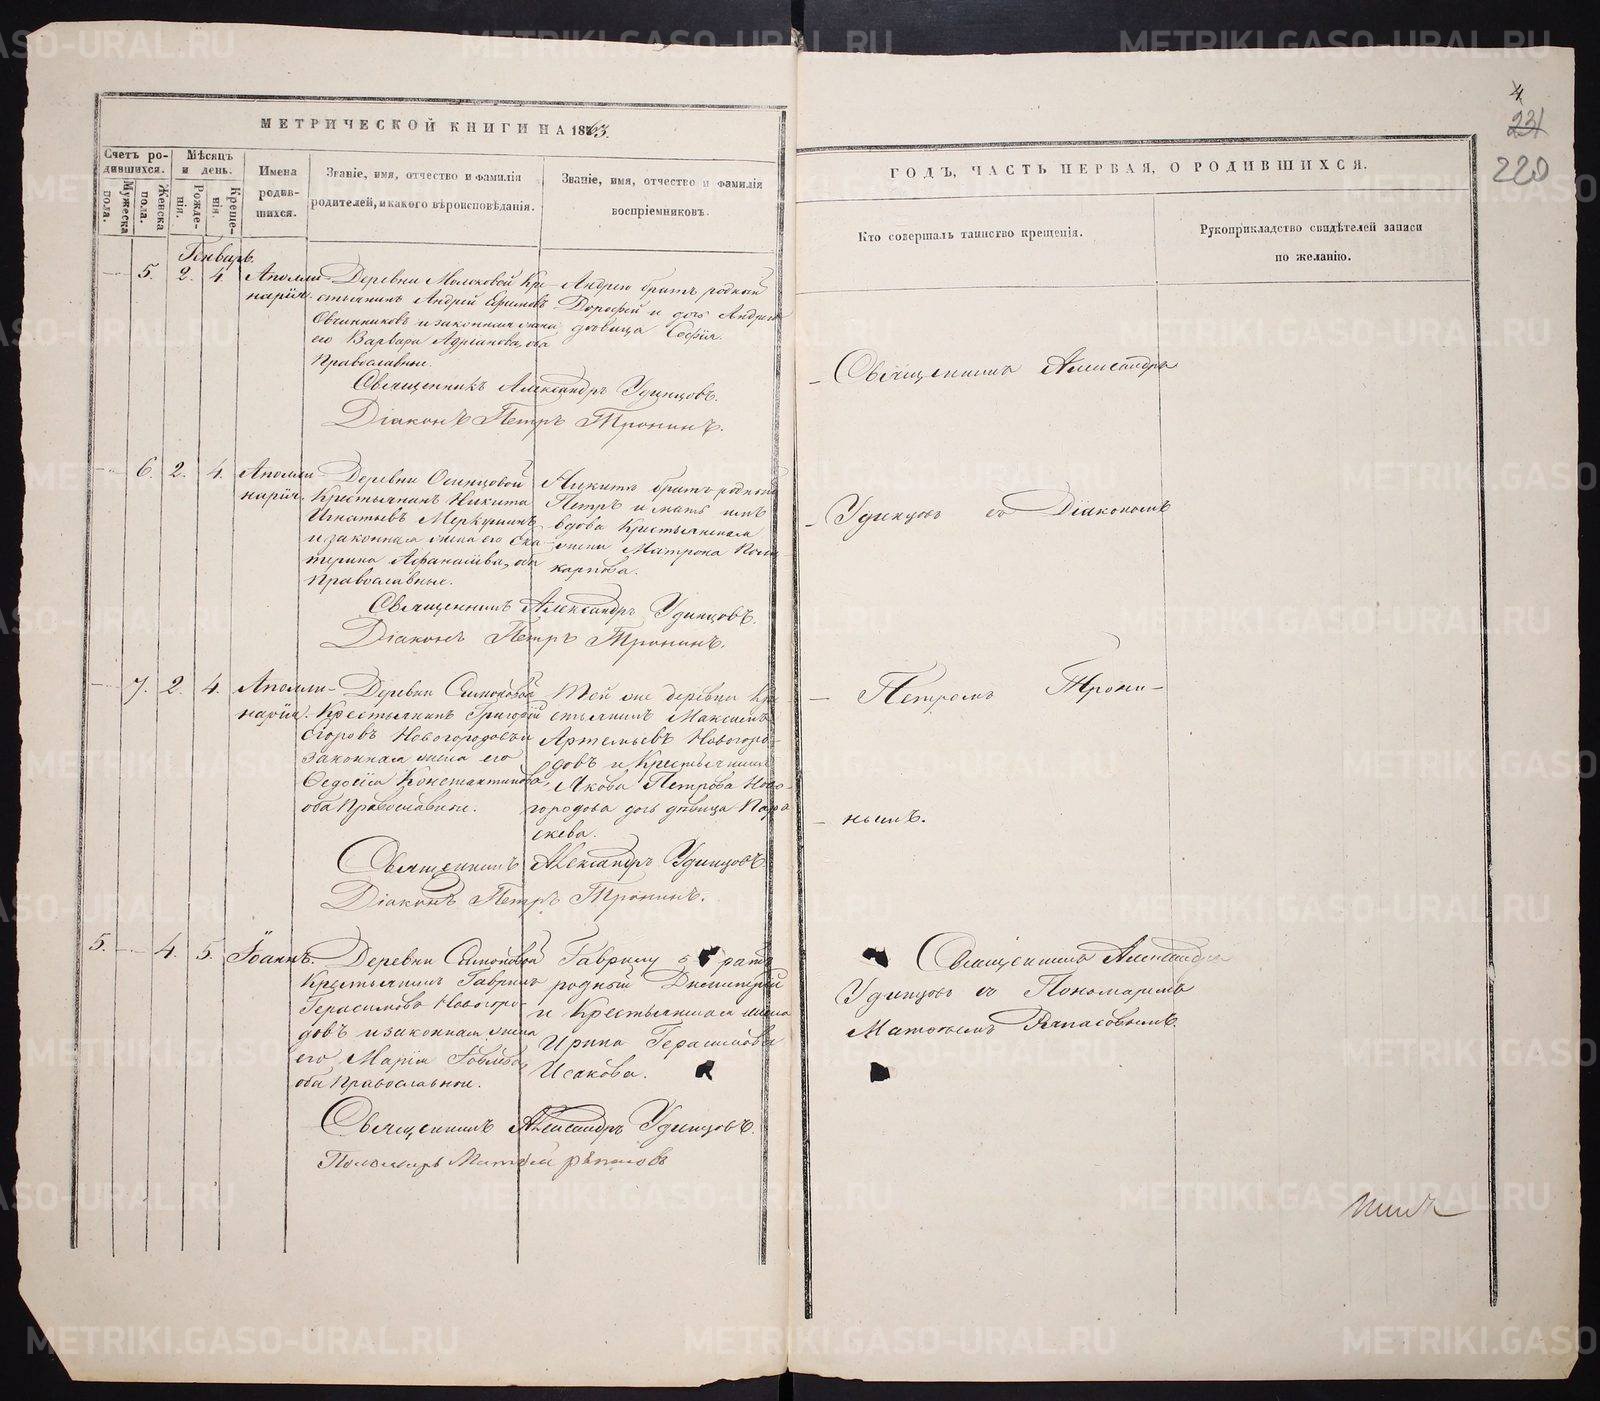 МЕТРИЧЕСКОЙ КНИГИ НА 1863.
Счетъ родившихся.
Мѣсяцъ и день.
Мужеска пола.
Женска пола.
Рожденія.
Крещенія.
Имена родившихся.
Званіе, имя, отчество и фамилія
родителей, и какого вѣроисповѣданія.
Званіе, имя, отчество и фамилія
воспріемниковъ.
Январь.
5. 2. 4.
Аполли-
нарія.
Деревни Молоковой Кре-
стьянинъ Андрей Ефимовъ
Овчинниковъ и законная жена
его Варвара Адріанова, оба
Православные.
Андрею братъ родной
Дорофей и дочь Андрея
дѣвица Софія.
Священникъ Александръ Удинцовъ.
Діаконъ Петръ Тронинъ.
6. 2. 4.
Аполли-
нарія.
Деревни Осинцовой
Крестьянинъ Никита
Игнатьевъ Меркушинъ
и законная жена его Ека-
терина Афанасьева, оба
Православные.
Никитѣ братъ родной
Петръ и мать имъ
вдова Крестьянская
жена Матрона Поли-
карпова.
Священникъ Александръ Удинцовъ.
Діаконъ Петръ Тронинъ.
7. 2. 4.
Аполли-
нарія.
Деревни Симоновой
Крестьянинъ Григорій
Егоровъ Новогородовъ и
законная жена его
Ѳедосія Константинова,
оба Православные.
Той же деревни Кре-
стьянинъ Максимъ
Артемьевъ Новогоро-
довъ и Крестьянина
Якова Петрова Ново-
городова дочь дѣвица Пара-
скева.
Священникъ Александръ Удинцовъ
Діаконъ Петръ Тронинъ.
5. 4. 5.
Іоаннъ.
Деревни Симоновой
Крестьянинъ Гавриилъ
Герасимовъ Новогоро-
довъ и законная жена
его Марія
оба Православные.
Гавриилу братъ
родный Димитрій
и Крестьянская жена
Ирина Герасимова
Исакова.
Священникъ Александръ Удинцовъ.
Пономарь Матѳей Рѣпасовъ
ГОДЪ, ЧАСТЬ ПЕРВАЯ, О РОДИВШИХСЯ.
4
231
220
Кто совершалъ таинство крещенія.
Рукоприкладство свидѣтелей записи
по желанію.
Священникъ Александръ
Удинцовъ съ Діакономъ
Петромъ Трони-
нымъ.
Священникъ Александръ
Удинцовъ съ Пономаремъ
Матѳеемъ Рѣпасовымъ.
METRIKI.GASO-URAL.RU